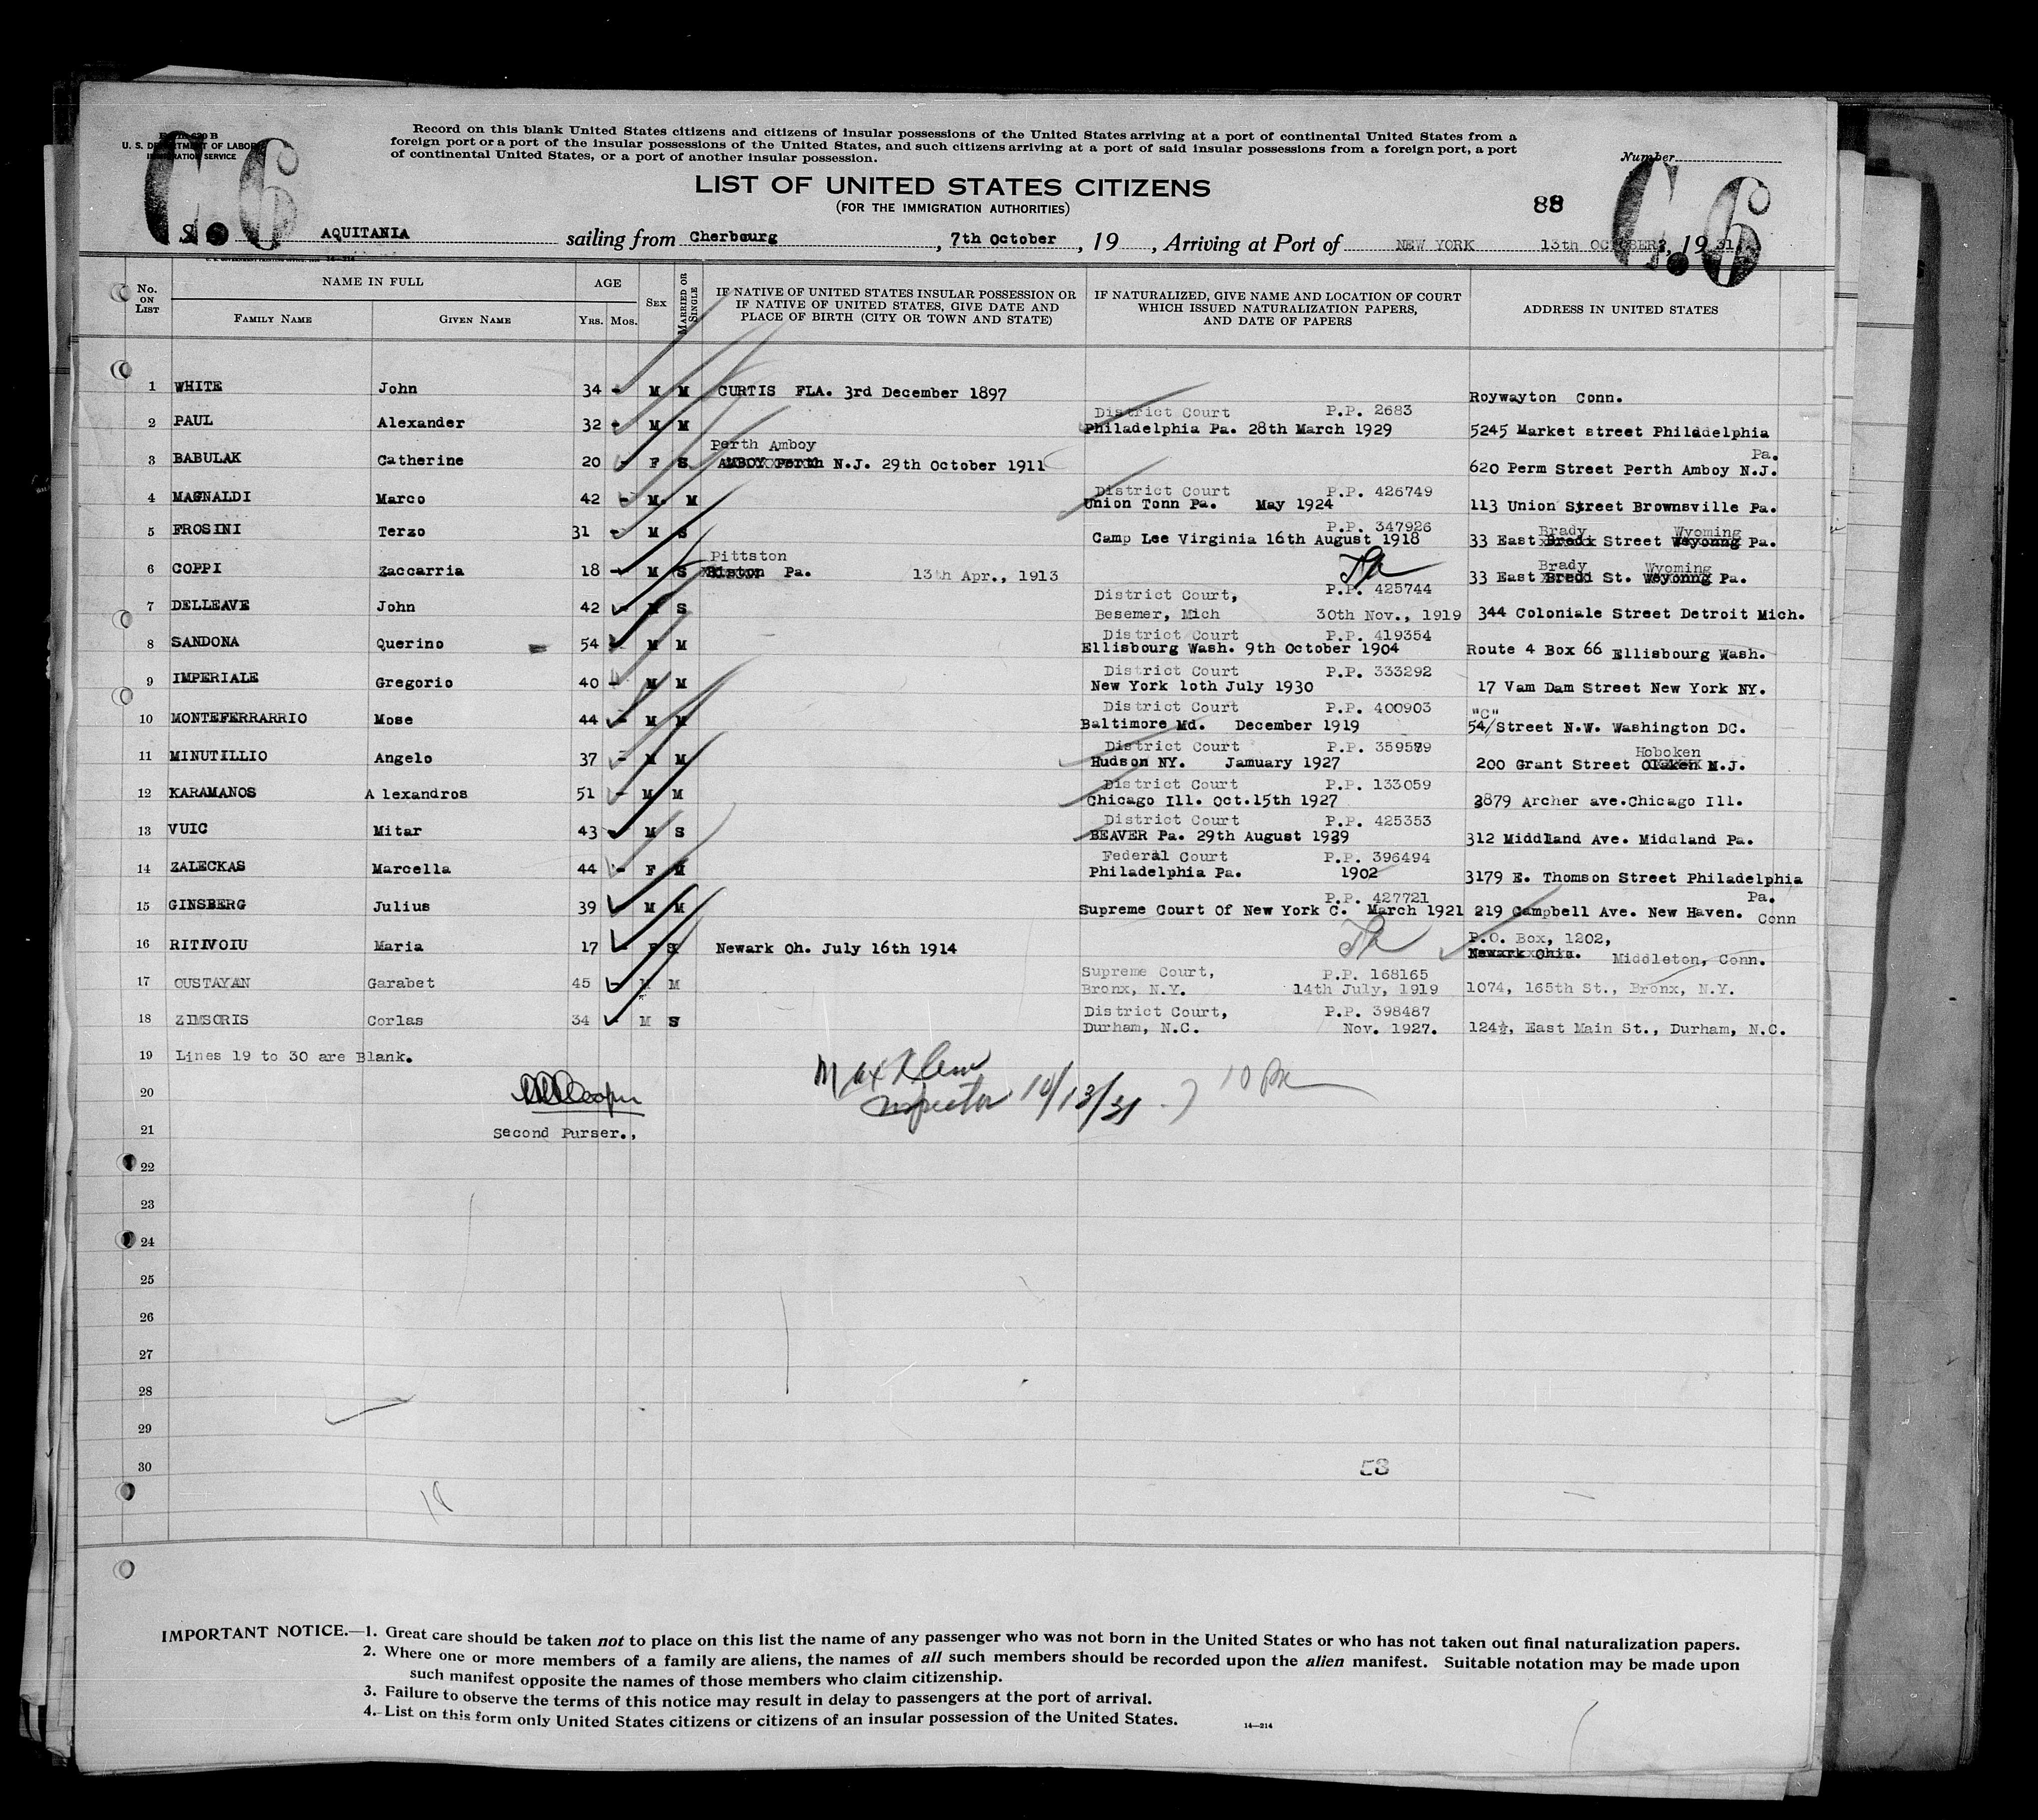 Form 630 B
U. S. DEPARTMENT OF LABOR
IMMIGRATION SERVICE
C. 6
Record on this blank United States citizens and citizens of insular possessions of the United States arriving at a port of continental United States from a
foreign port or a port of the insular possessions of the United States, and such citizens arriving at a port of said insular possessions from a foreign port, a port
of continental United States, or a port of another insular possession.
Number
LIST OF UNITED STATES CITIZENS
(FOR THE IMMIGRATION AUTHORITIES)
88
C. 6
S. AQUITANIA sailing from Cherbourg, 7th October, 19 , Arriving at Port of NEW YORK 13th OCTOBER, 1931
No. ON LIST
NAME IN FULL
FAMILY NAME
GIVEN NAME
AGE
YRS. MOS.
SEX
MARRIED OR SINGLE
IF NATIVE OF UNITED STATES INSULAR POSSESSION OR
IF NATIVE OF UNITED STATES, GIVE DATE AND
PLACE OF BIRTH (CITY OR TOWN AND STATE)
IF NATURALIZED, GIVE NAME AND LOCATION OF COURT
WHICH ISSUED NATURALIZATION PAPERS,
AND DATE OF PAPERS
ADDRESS IN UNITED STATES
1 WHITE John 34 - M M CURTIS FLA. 3rd December 1897 Roywayton Conn.
District Court P.P. 2683
2 PAUL Alexander 32 - M M Philadelphia Pa. 28th March 1929 5245 Market street Philadelphia
Perth Amboy Pa.
3 BABULAK Catherine 20 - F S AMBOY Perth N.J. 29th October 1911 620 Perm Street Perth Amboy N.J.
District Court P.P. 426749
4 MAGNALDI Marco 42 - M M Union Tonn Pa. May 1924 113 Union Street Brownsville Pa.
P.P. 347926 Brady Wyoming
5 FROSINI Terzo 31 - M S Camp Lee Virginia 16th August 1918 33 East Bredi Street Weyonng Pa.
Pittston Brady Wyoming
6 COPPI Zaccarria 18 - M S Biston Pa. 13th Apr., 1913 33 East Bredi St. Weyonng Pa.
District Court, P.P. 425744
7 DELLEAVE John 42 - M S Besemer, Mich 30th Nov., 1919 344 Coloniale Street Detroit Mich.
District Court P.P. 419354
8 SANDONA Querino 54 - M M Ellisbourg Wash. 9th October 1904 Route 4 Box 66 Ellisbourg Wash.
District Court P.P. 333292
9 IMPERIALE Gregorio 40 - M M New York loth July 1930 17 Vam Dam Street New York NY.
District Court P.P. 400903 "C"
10 MONTEFERRARRIO Mose 44 - M M Baltimore Md. December 1919 54/Street N.W. Washington DC.
District Court P.P. 359589 Hoboken
11 MINUTILLIO Angelo 37 - M M Hudson NY. Jamuary 1927 200 Grant Street Olaken N.J.
District Court P.P. 133059
12 KARAMANOS A lexandros 51 - M M Chicago Ill. Oct.15th 1927 3879 Archer ave.Chicago Ill.
District Court P.P. 425353
13 VUIC Mitar 43 - M S BEAVER Pa. 29th August 1929 312 Middland Ave. Middland Pa.
Federal Court P.P. 396494
14 ZALECKAS Marcella 44 - F M Philadelphia Pa. 1902 3179 E. Thomson Street Philadelphia
P.P. 427721 Pa.
15 GINSBERG Julius 39 M M Supreme Court Of New York C. March 1921 219 Campbell Ave. New Haven. Conn
P.O. Box, 1202,
16 RITIVOIU Maria 17 - F S Newark Oh. July 16th 1914 Newark Ohio. Middleton, Conn.
Supreme Court, P.P. 168165
17 OUSTAYAN Garabet 45 - M M Bronx, N.Y. 14th July, 1919 1074, 165th St., Bronx, N.Y.
District Court, P.P. 398487
18 ZIMSORIS Corlas 34 - M S Durham, N.C. Nov. 1927. 124½, East Main St., Durham, N.C.
19 Lines 19 to 30 are Blank.
Max Klein
20 Inspector 10/13/31
21 Second Purser.,
22
23
24
25
26
27
28
29
30
53
18
IMPORTANT NOTICE.—1. Great care should be taken not to place on this list the name of any passenger who was not born in the United States or who has not taken out final naturalization papers.
2. Where one or more members of a family are aliens, the names of all such members should be recorded upon the alien manifest. Suitable notation may be made upon
such manifest opposite the names of those members who claim citizenship.
3. Failure to observe the terms of this notice may result in delay to passengers at the port of arrival.
4. List on this form only United States citizens or citizens of an insular possession of the United States.
14—214